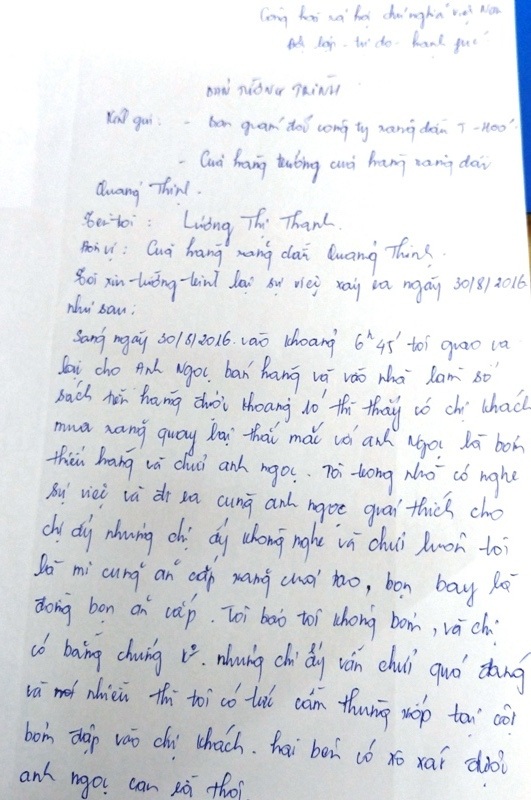 Cộng hoà xã hội chủ nghĩa Việt Nam
Độc lập - tự do - hạnh phúc
ĐƠN TƯỜNG TRÌNH
Kính gửi: - Ban giám đốc công ty xăng dầu T-Hoá
- Cửa hàng trưởng cửa hàng xăng dầu
Quảng Thịnh.
Tên tôi: Lương Thị Thanh.
Đơn vị: Cửa hàng xăng dầu Quảng Thịnh.
Tôi xin tường trình lại sự việc xảy ra ngày 30/8/2016
như sau:
Sáng ngày 30/8/2016. vào khoảng 6h45' tôi giao ca
lại cho Anh Ngọc bán hàng và vào nhà làm sổ
sách tiền hàng được khoảng 10' thì thấy có chị khách
mua xăng quay lại thắc mắc với anh Ngọc là bơm
thiếu hàng và chửi anh ngọc. Tôi trong nhà có nghe
sự việc và đi ra cùng anh ngọc giải thích cho
chị ấy nhưng chị ấy không nghe và chửi luôn tôi
là mi cũng ăn cắp xăng của tao, bọn bay là
đồng bọn ăn cắp. Tôi bảo tôi không bơm, và chị
có bằng chứng k°. nhưng chị ấy vẫn chửi quá đáng
và nhiều thì tôi có tức cầm thùng xốp tại cột
bơm đập vào chị khách. hai bên có xô xát được
anh ngọc can rồi thôi.